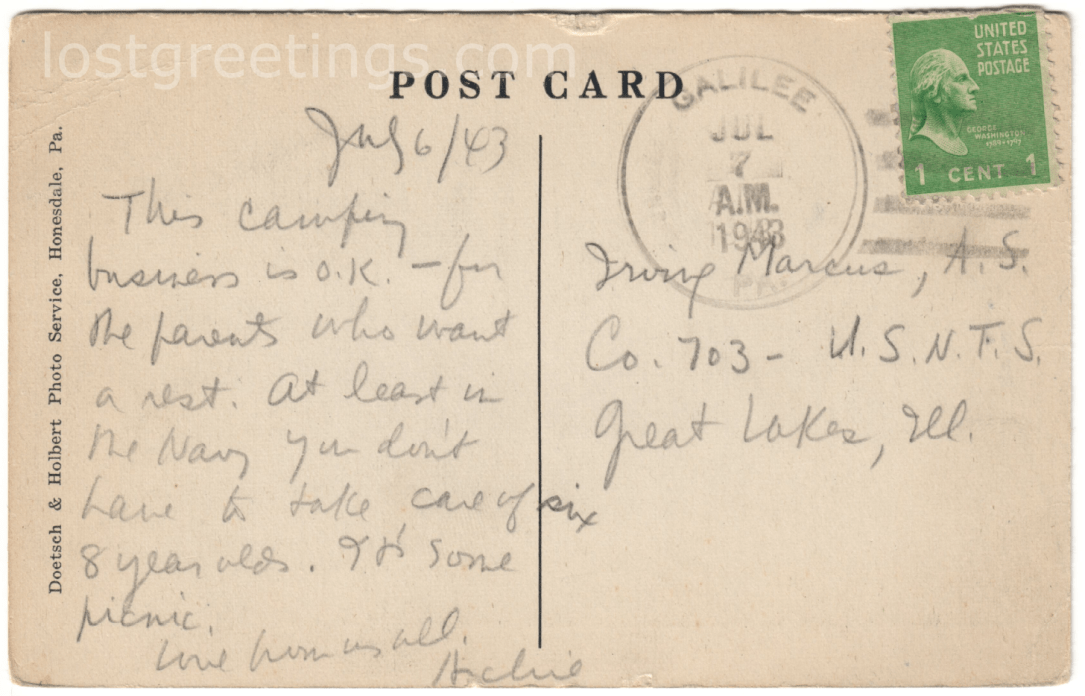 lostgreetings.com
POST CARD
UNITED
STATES
POSTAGE
GEORGE
WASHINGTON
1 CENT 1
GALILEE
JUL
7
A.M.
1943
PA.
Doetsch & Holbert Photo Service, Honesdale, Pa.
July 6/43
This camping
business is O.K. – for
the parents who want
a rest. At least in
the Navy you don't
have to take care of six
8 year olds. It's some
picnic.
Love from us all.
Archie
Irving Marcus, A.S.
Co. 703 - U.S.N.T.S.
Great Lakes, Ill.